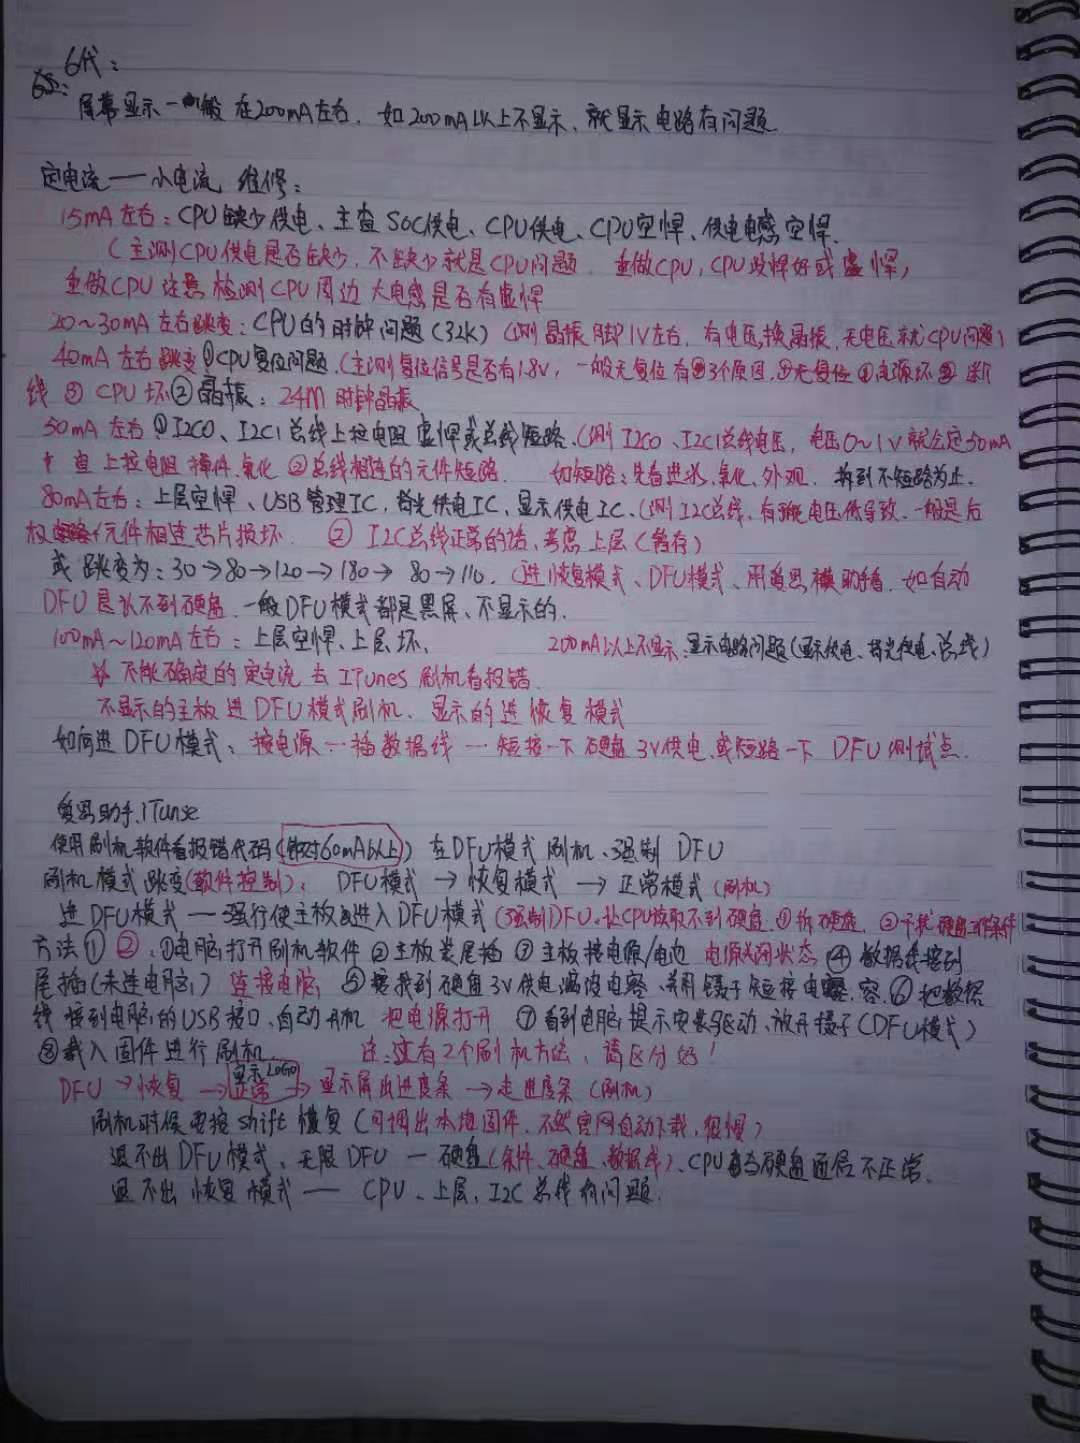 6代：
屏幕显示一般在200mA左右. 如200mA以上不显示、就显示电路有问题.
定电流——小电流 维修：
15mA左右：CPU缺少供电、主查SOC供电、CPU供电、CPU空悍、供电电感空悍.
(主测CPU供电是否缺少, 不缺少就是CPU问题. 重做CPU, CPU没悍好或虚悍,
重做CPU注意检测CPU周边大电感是否有虚悍
20~30mA左右跳变：CPU的时钟问题(32K) (测晶振脚1V左右, 有电压换晶振, 无电压就CPU问题)
40mA左右跳变①CPU复位问题.(主测复位信号是否有1.8V, 一般无复位有3个原因,
线 ③ CPU坏②晶振：24M时钟晶振
50mA左右①I2C0、I2C1总线上拉电阻虚悍或总线短路.(测I2C0、I2C1总线电压, 电压0~1V就会定50mA
查上拉电阻 掉件.氧化 ②总线相连的元件短路. 如短路：先看进水.氧化、外观. 拆到不短路为止.
80mA左右：上层空悍、USB管理IC, 背光供电IC、显示供电IC.(测I2C总线, 有电压低导致.一般是后
元件相连芯片损坏. ② I2C总线正常的话, 考虑上层(暂存)
或跳变为：30→80→120→180→ 80→110. (进恢复模式、DFU模式、用爱思 助手看. 如自动
DFU是认不到硬盘. 一般DFU模式都是黑屏、不显示的.
100mA~120mA左右：上层空悍、上层坏、 200mA以上不显示：显示电路问题(显示供电、背光供电、总线)
不能确定的定电流去ITunes刷机看报错.
不显示的主板进DFU模式刷机、显示的进恢复模式
如何进DFU模式：接电源一插数据线一短接一下硬盘3V供电.或短路一下DFU测试点.
爱思助手.ITunse
使用刷机软件看报错代码(针对60mA以上) 在DFU模式刷机、强制DFU
刷机模式跳变(软件控制)：DFU模式→恢复模式→正常模式(刷机)
进DFU模式—强行使主板进入DFU模式(强制DFU.让CPU读取不到硬盘.①拆硬盘.②干扰硬盘工作条件
方法①②：①电脑打开刷机软件②主板装尾插③主板接电源/电池 电源关闭状态④数据线接到
尾插(未连电脑) 连接电脑 ⑤ 找到硬盘3V供电滤波电容、并用镊子短接电容.⑥把数据
线接到电脑的USB接口、自动开机 把电源打开 ⑦看到电脑提示安装驱动、放开镊子(DFU模式)
⑧载入固件进行刷机. 注：这有2个刷机方法, 请区分好！
DFU→恢复→正常 显示LOGO→显示屏出进度条→走进度条(刷机)
刷机时候要按shift恢复(可调出本地固件, 不然官网自动下载, 很慢)
退不出DFU模式、无限DFU—硬盘(条件、硬盘、数据线)、CPU与硬盘通信不正常.
退不出恢复模式——CPU、上层, I2C总线有问题.